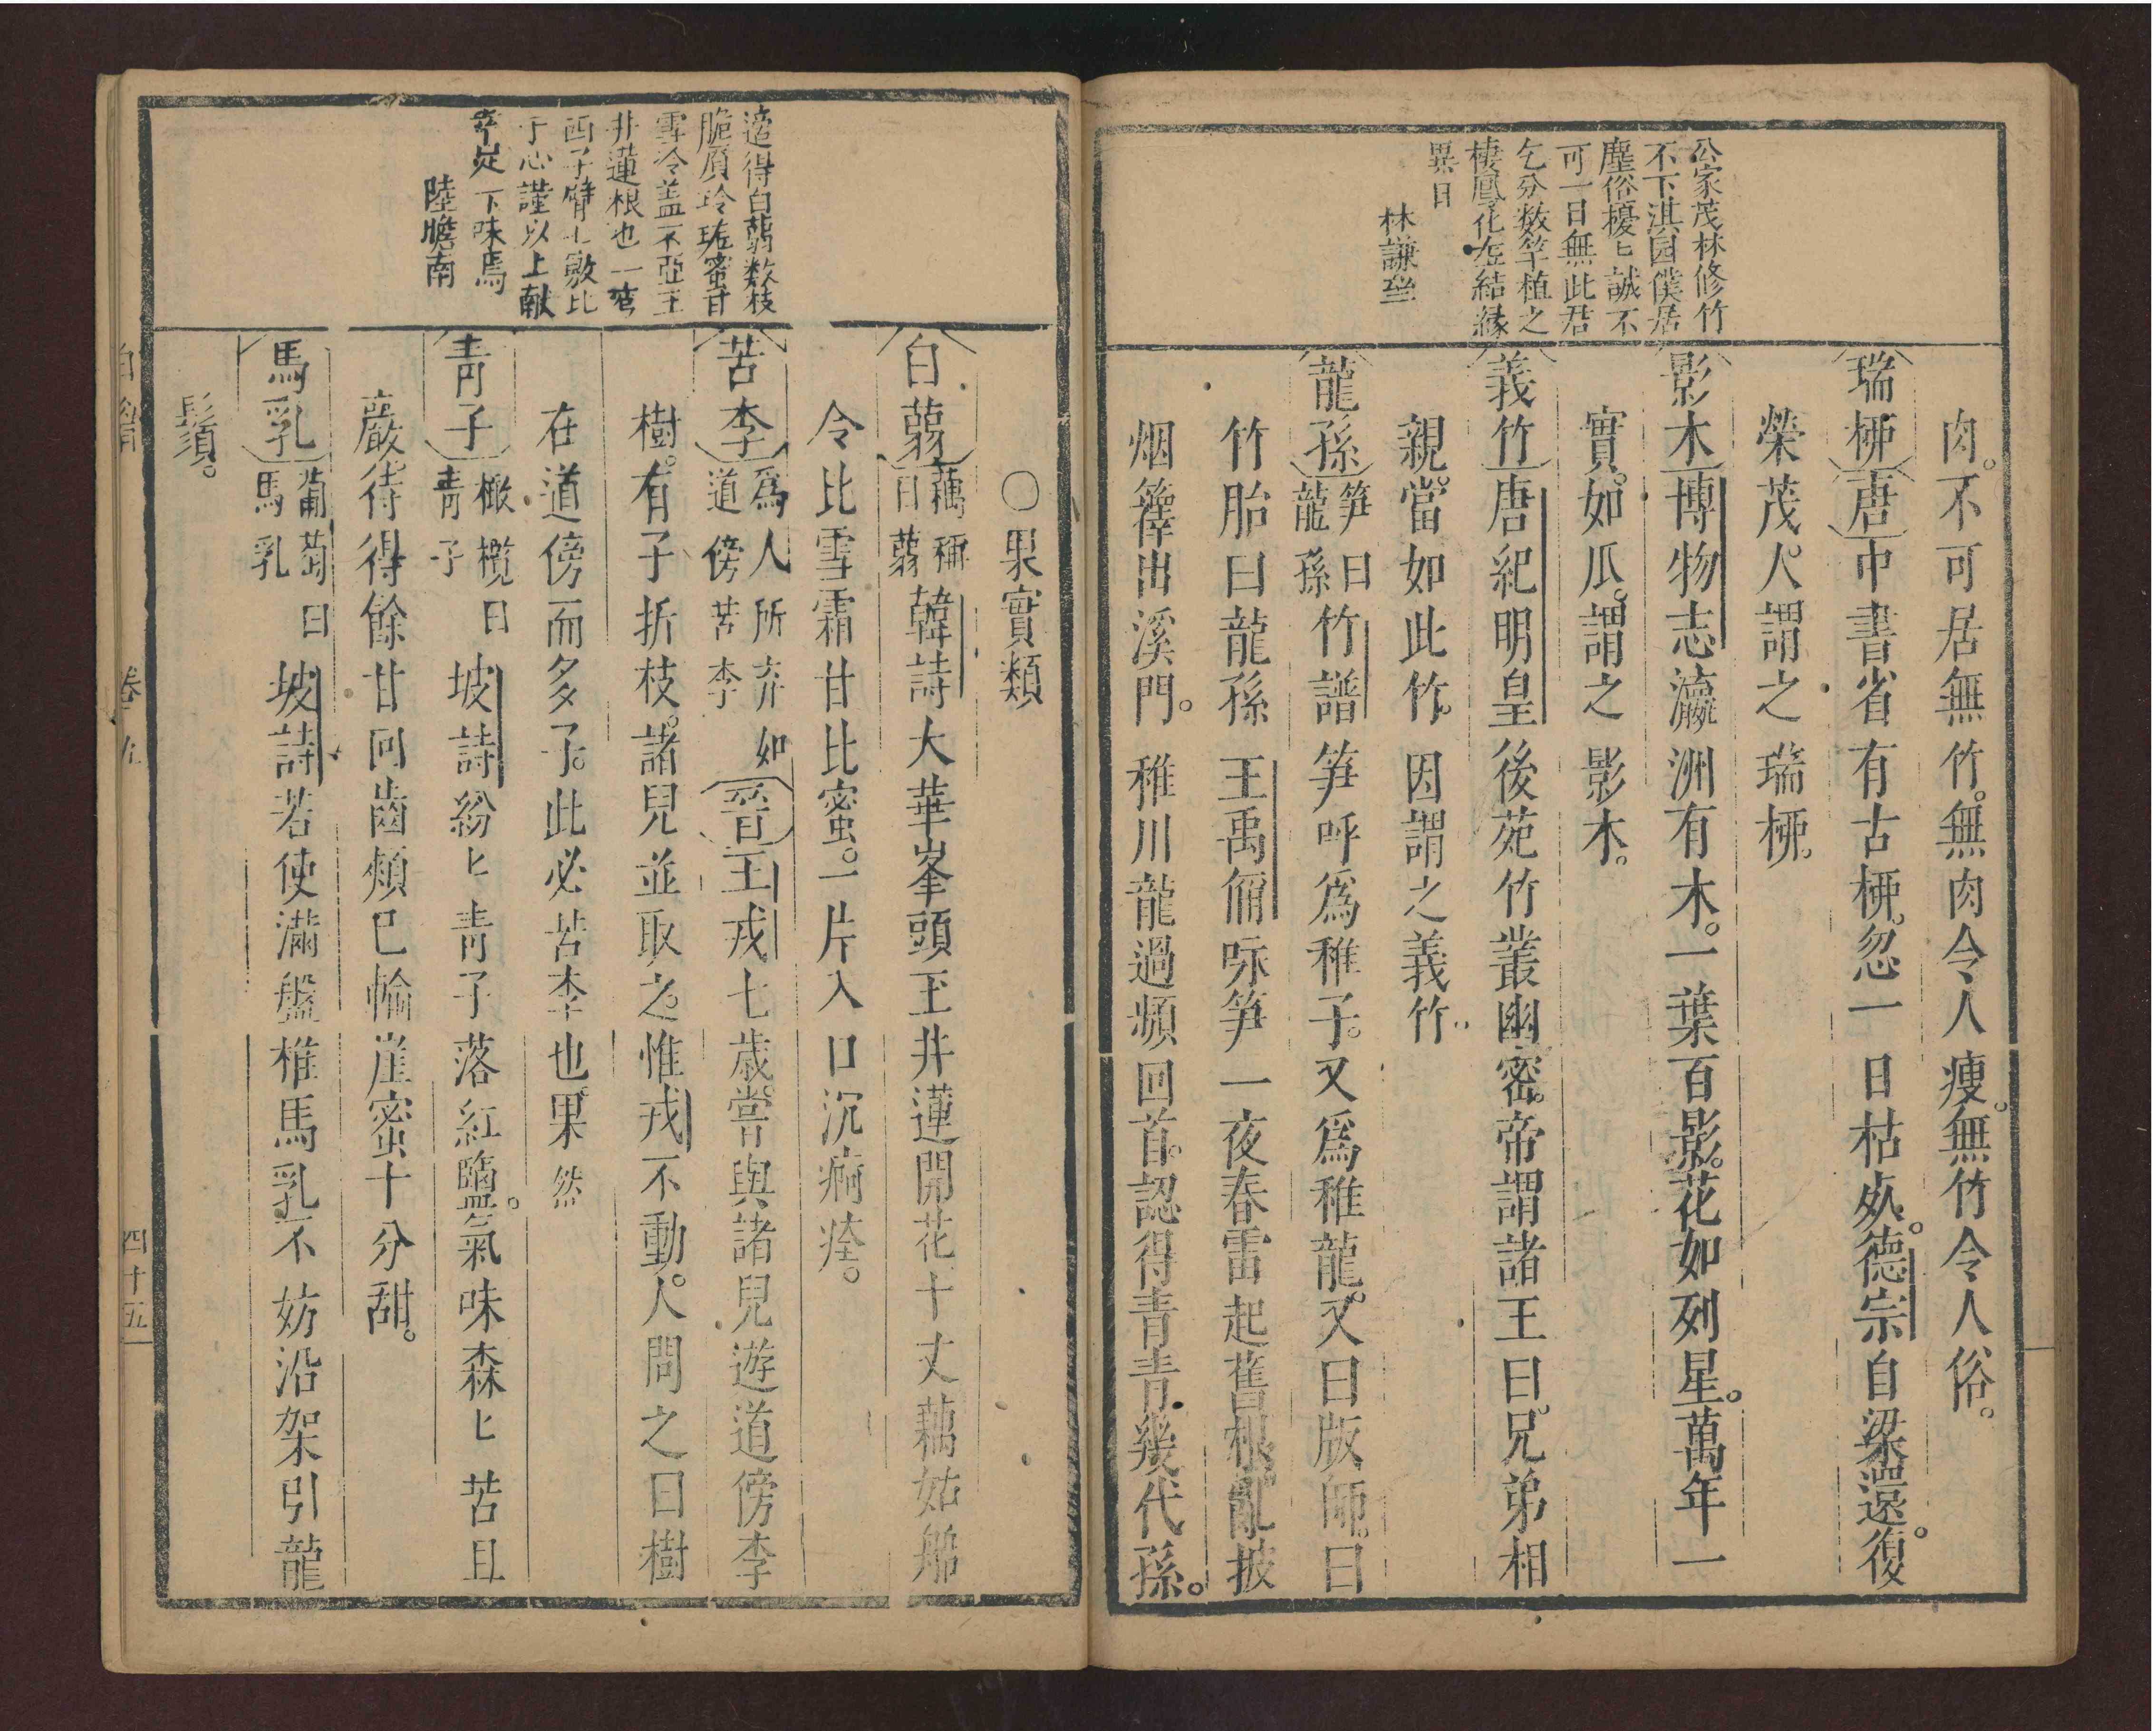 公家茂林修竹
不下淇园僕居
塵俗擾匕誠不
可一日無此君
乞分数竿植之
棲鳳化龙結緣
異日
林謙
肉。不可居無竹。無肉令人瘦。無竹令人俗。
瑞柳唐中書省有古柳。忽一日枯死。德宗自梁還。復
榮茂。人謂之瑞柳。
影木博物志瀛洲有木。一葉百影。花如列星。萬年一
實。如瓜。謂之影木。
義竹唐紀明皇後苑竹叢幽密。帝謂諸王曰。兄弟相
親。當如此竹。因謂之義竹
龍孫笋曰龍孫竹譜笋呼爲稚子。又爲稚龍。又曰版師。曰
竹胎曰龍孫王禹偁咏笋一夜春雷起舊根亂披
烟籜出溪門。稚川龍過頻回首。認得青青幾代孫。
適得白蒻数枝
脆質玲珑蜜甘
雪冷盖不亞玉
井蓮根也一
西子臂匕敢比
于心謹以上献
幸是下味焉
陸瞻南
○果實類
白蒻藕稱白蒻韓詩大華峯頭玉井蓮開花十丈藕如船
令比雪霜甘比蜜。一片入口沉痾痊。
苦李爲人所弃如道傍苦李晉王戎七歲。嘗與諸兒遊道傍李
樹。有子折枝。諸兒並取之。惟戎不動。人問之曰樹
在道傍而多子。此必苦李也。果然
青子橄欖曰青子坡詩紛匕青子落紅鹽。氣味森匕苦且
嚴待得餘甘回齒頰已輸崖蜜十分甜。
馬乳葡萄曰馬乳坡詩若使滿盤椎馬乳不妨沿架引龍
鬚。
卷十九
四十五